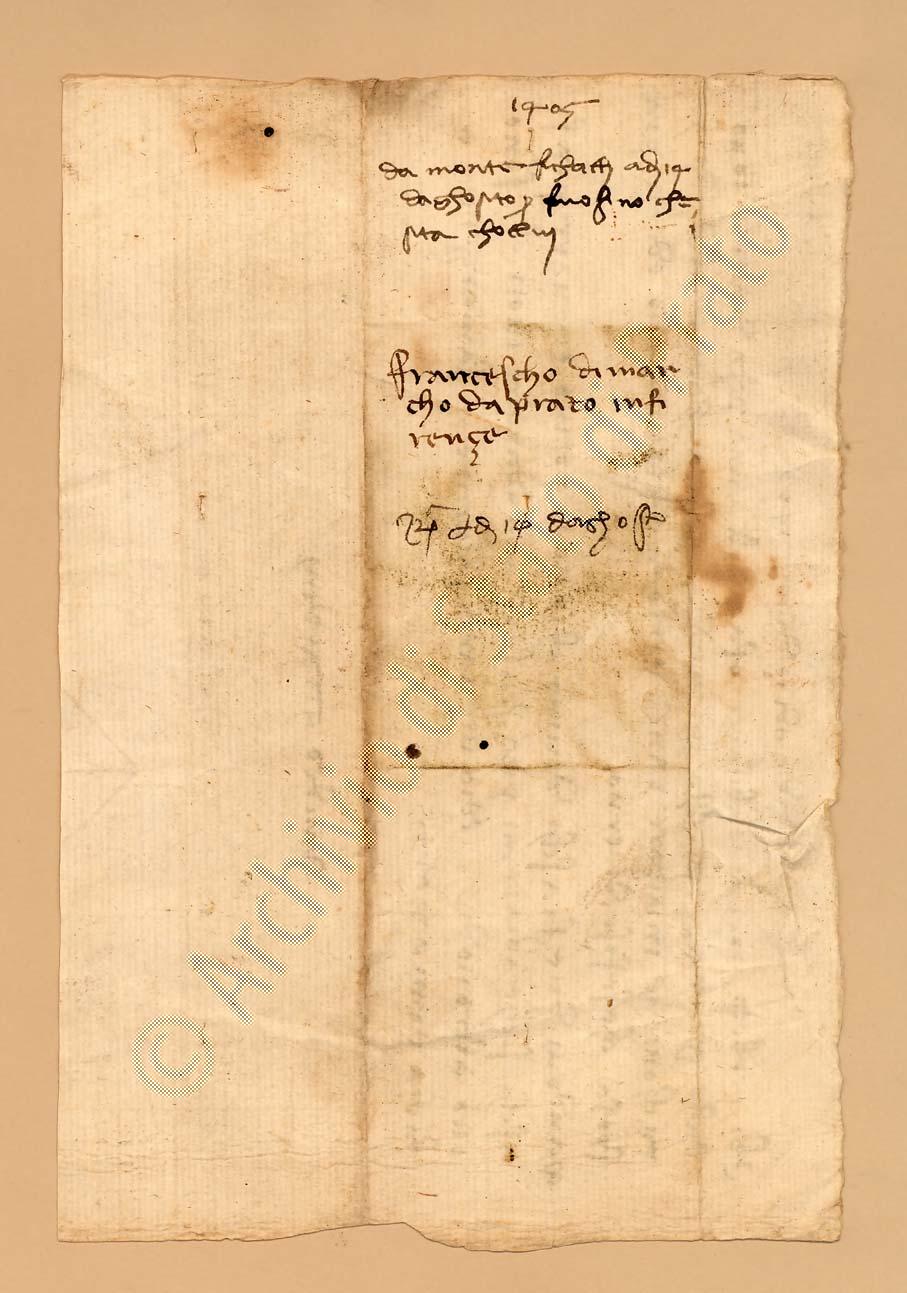 1405
da monte fichalli adj 14
daghosto p fruosino che
sta chollui
Francescho di mar
cho da prato in fi
rençe
R adj 14 daghosto
© Archivio di Stato di Prato